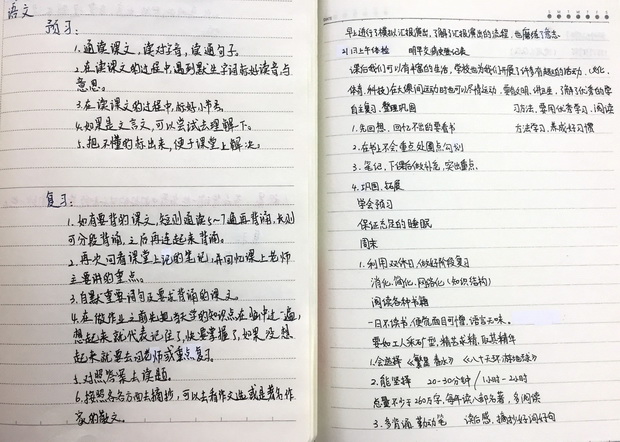 语文
预习：
1.通读课文，读对字音，读通句子。
2.在读课文的过程中遇到默生字词标好读音与
意思。
3.在读课文的过程中，标好小节号
4.如果是文言文，可以尝试去理解下。
5.把不懂的标出来，便于课堂上解决。
复习：
1.如有要背的课文，短则通读5~7遍再背诵，长则
可分段背诵，之后再连起来背诵。
2.再次回看课堂上记的笔记，并回忆课上老师
主要讲的重点。
3.自默重要词句及要求背诵的课文
4.在做作业之前先把当天学的知识点在脑中过一遍，
想起来就代表记住了，快要掌握了，如果没想
起来就要去问老师或重点复习。
5.对照答案去读题。
6.按照各各方面去摘抄，可以去看作文选，或是著名作
家的散文。
早上进行了模拟汇报演出，了解了汇报演出的流程，也磨练了意志。
21日上午体检 明早交病史登记表
课后我们可以有丰富的生活，学校也为我们开展了许多有趣的活动。
体育、科技)在大课间运动时也可以尽情运动，
自主复习、整理巩固 习方法，要用优秀学习，阅读
1.先回想，回忆不出的要看书 方法学习，养成好习惯
2.在书上不会重点处圈点勾划
3.笔记，下课后做补充，突出重点。
4.巩固、拓展
学会预习
保证充足的睡眠
周末
1.利用双休日，做好阶段复习
消化、简化、网络化(知识结构)
阅读各种书籍
一日不读书，便觉面目可憎，语言无味。
要如工人采矿型，精益求精，取其精华
1.会选择 《繁星春水》 《八十天环游地球》
2.能坚持 20-30分钟 / 1小时-2小时
总量不少于260万字，每年读八部名著，多阅读
3.多背诵，勤动笔 读后感，摘抄好词好句